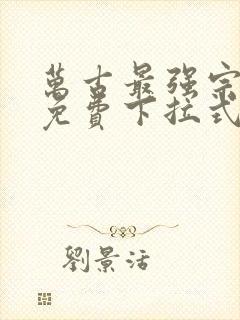 萬古最强宗
免費下拉式
劉景活